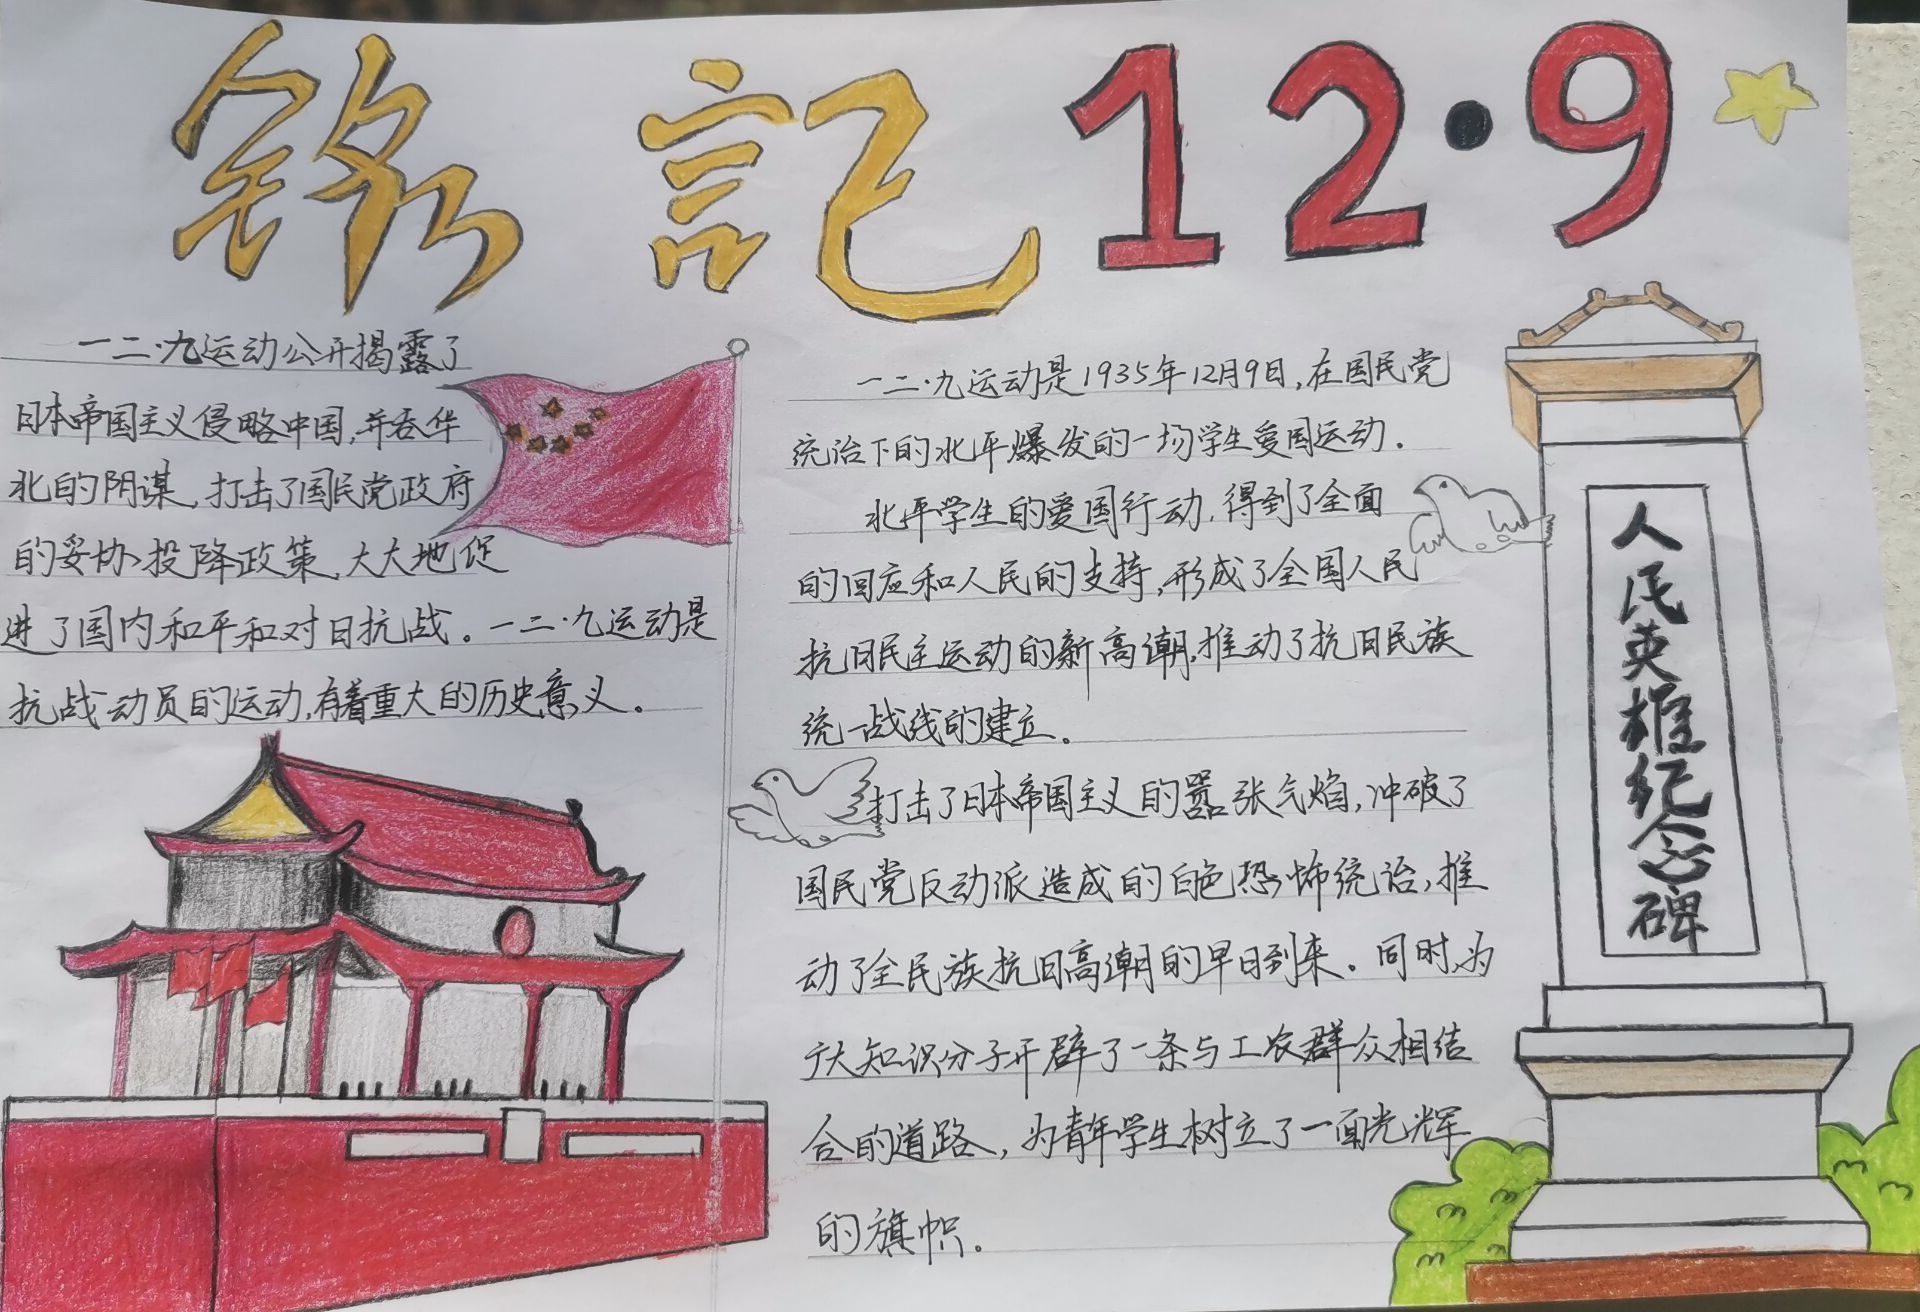 铭記12·9
一二·九运动公开揭露了
日本帝国主义侵略中国,并吞华
北的阴谋,打击了国民党政府
的妥协投降政策,大大地促
进了国内和平和对日抗战。一二·九运动是
抗战动员的运动,有着重大的历史意义。
一二·九运动是1935年12月9日,在国民党
统治下的北平爆发的一场学生爱国运动.
北平学生的爱国行动,得到了全面
的回应和人民的支持,形成了全国人民
抗日民主运动的新高潮,推动了抗日民族
统一战线的建立。
打击了日本帝国主义的嚣张气焰,冲破了
国民党反动派造成的白色恐怖统治,推
动了全民族抗日高潮的早日到来。同时,为
广大知识分子开辟了一条与工农群众相结
合的道路,为青年学生树立了一面光辉
的旗帜.
人民英雄纪念碑